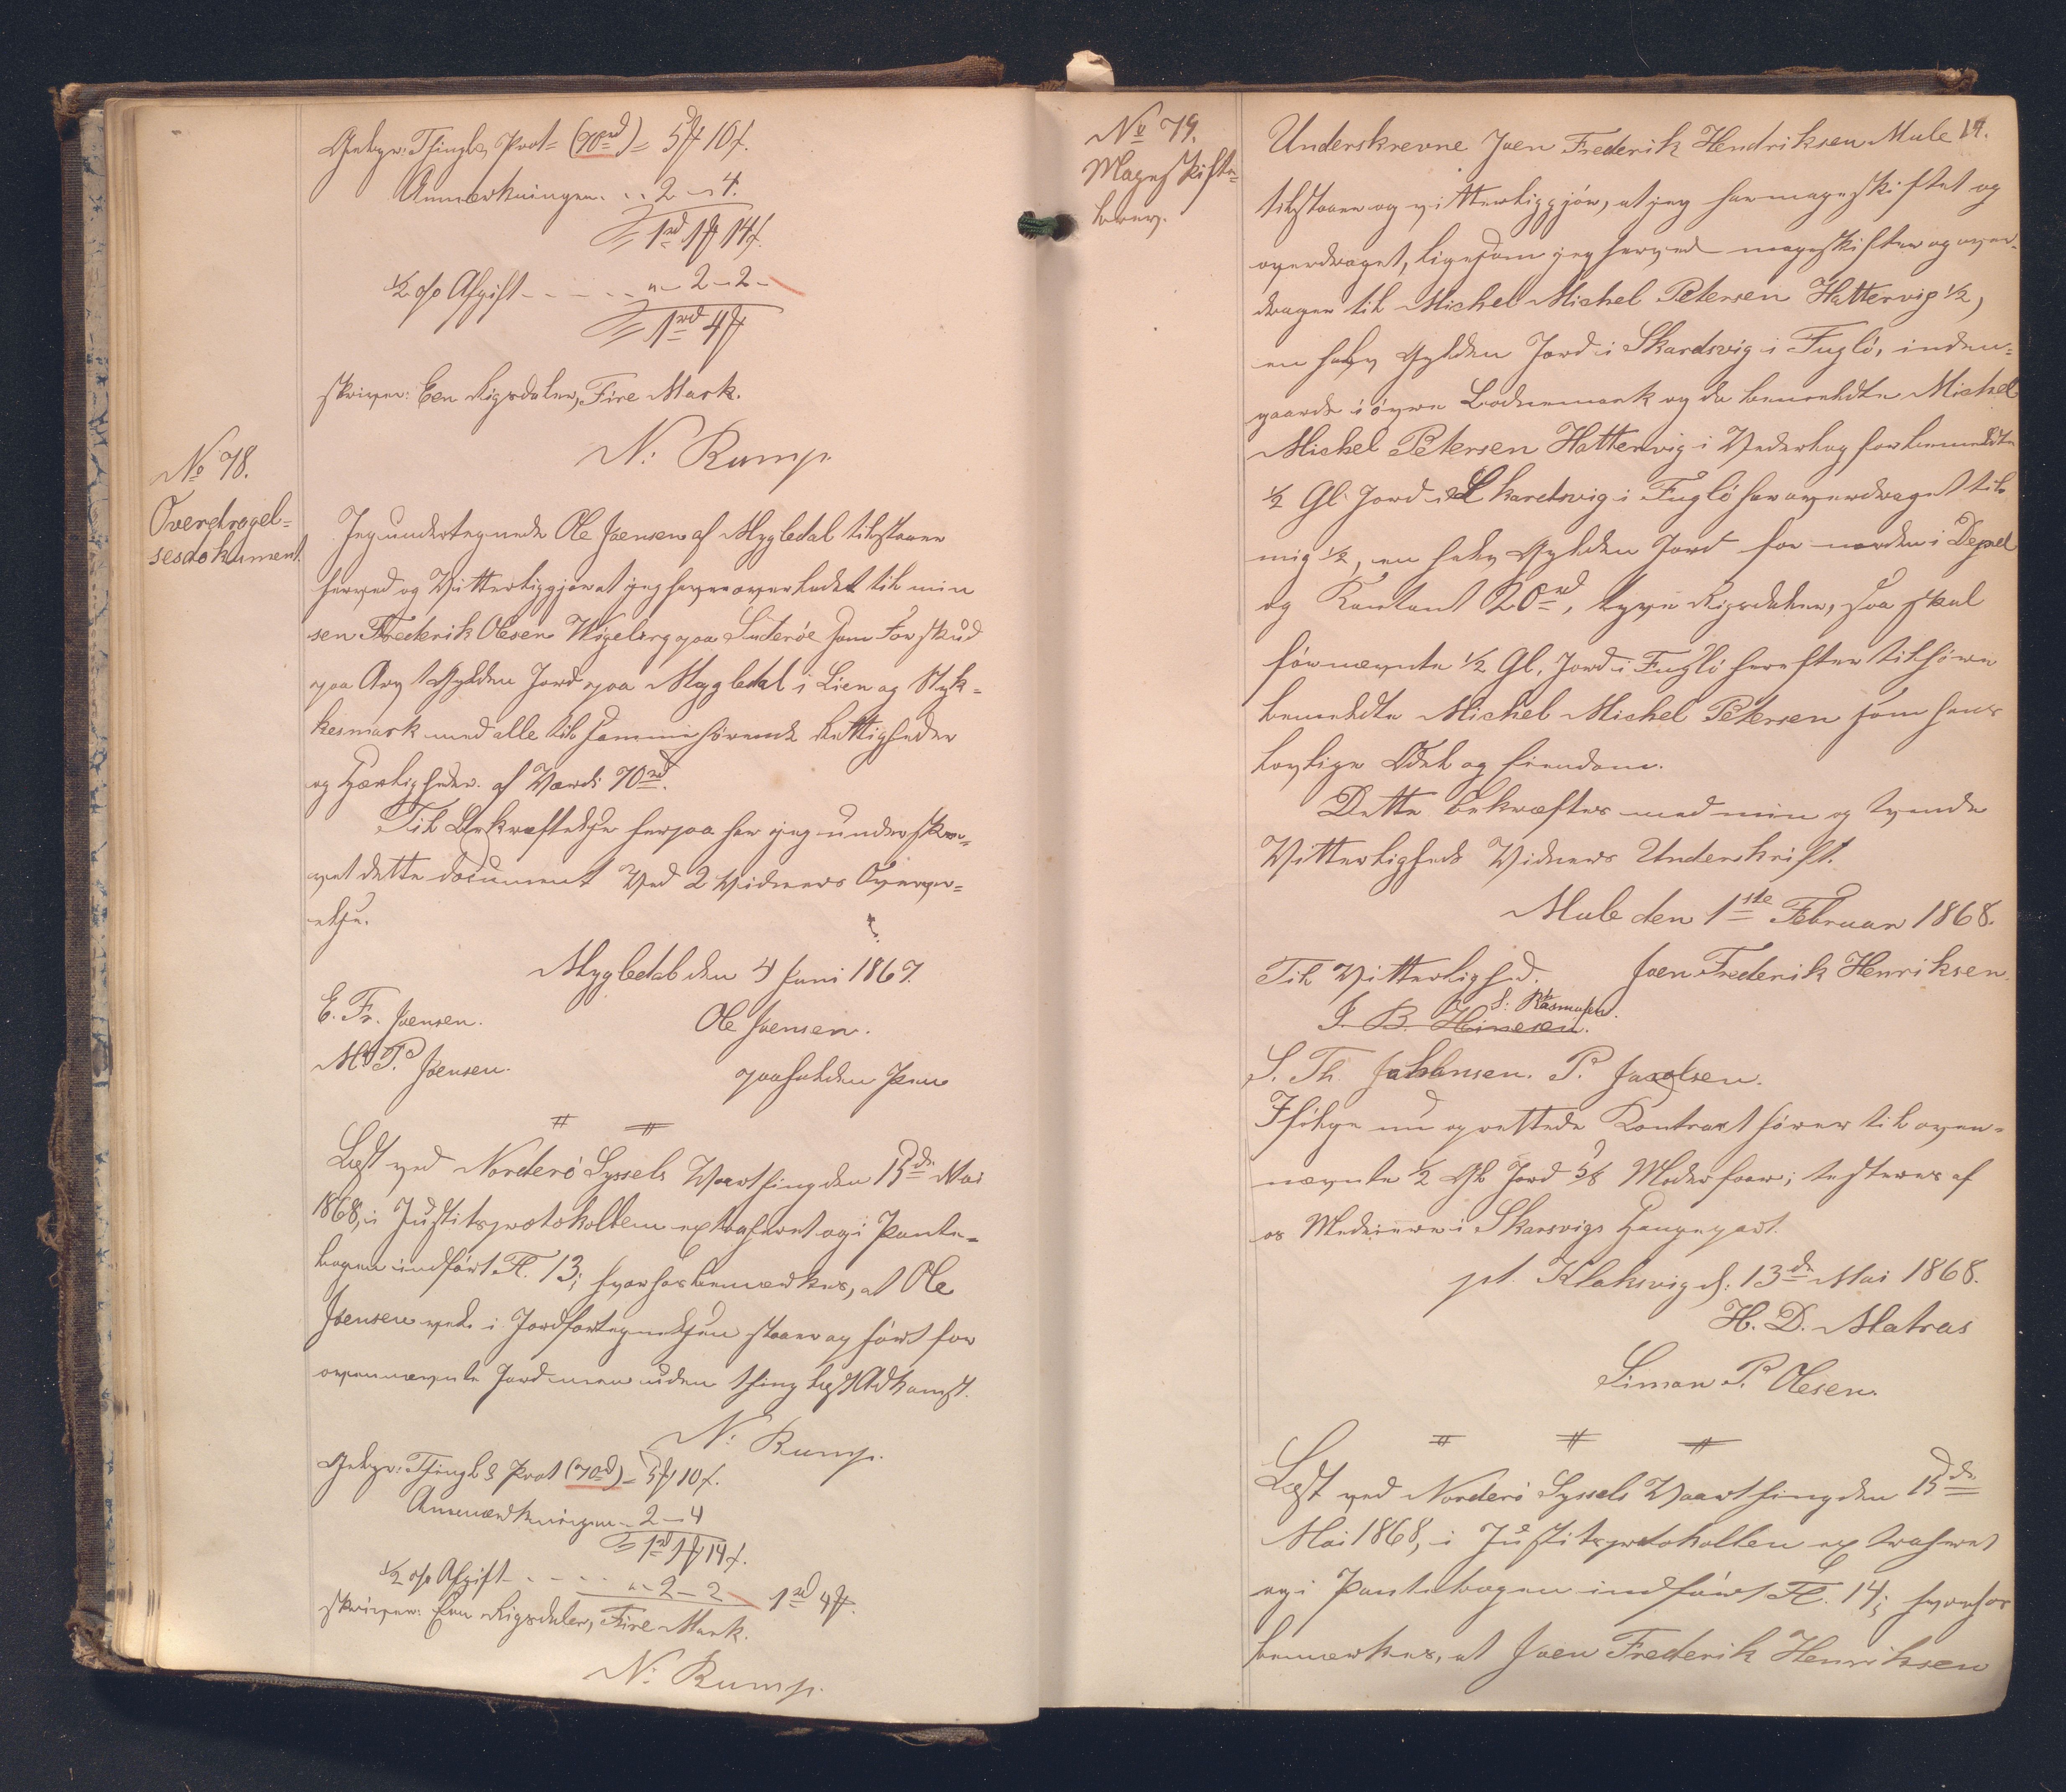 Gebyr: Thingl. Prot= (70rd) = 5 ₶ 10 ß.
Anmærkningen. .. 2 - 4.
= 1rd 1 ₶ 14 ß.
½ o/o Afgift - - - - .. "- 2 - 2 -
= 1rd 4 ₶
skriver: Een Rigsdaler, Fire Mark.
N: Rump.
No 78.
Overdragel=
sesdokument.
Jeg undertegnede Ole Joensen af Mygledal tilstaaer
herved og Vitterliggjør at jeg haver overladt til min
søn Frederik Olesen Vigelerg paa Suderöe som Forskud
paa Arv 1 Gylden Jord paa Mygledal i Lien og Styk=
kesmark med alle tilhammenhørende Rettigheder
og Herligheder. af Værdi 70rd.
Til Bekræftelse herpaa har jeg underskre=
vet dette document Ved 2 Vidners Overvæ=
relse.
Mygledal den 4 Juni 1867.
E. Fr. Joensen. Ole Joensen.
M. P. Joensen. paaholden Pen
Læst ved Norderö Syssels Vaarthing den 15de Mai
1868, i Justitsprotokollen extraheret og i Pante=
bogen indført Fl. 13; hvorhos bemærkes, at Ole
Joensen vel i Jordfortegnelsen staaer opført for
ovennævnte Jord men uden thinglæst Adkomst.
N: Rump.
Gebyr: Thingl & Prot (70rd) = 5 ₶ 10 ß.
Anmærkningen - 2 - 4
= 1rd 1 ₶ 14 ß.
½ o/o Afgift - - - - "- 2 - 2 1rd 4 ₶.
skriver: Een Rigsdaler, Fire Mark.
N: Rump.
No 79.
Mageskifte=
brev.
Underskrevne Joen Frederik Hendriksen Mule 14.
tilstaaer og vitterliggjör, at jeg har mageskiftet og
overdraget, ligesom jeg herved mageskifter og over=
drager til Michel Michel Petersen Hattervig ½,
en halv Gylden Jord i Skardsvig i Fuglö, inden=
gaards i övre Bödnemark og da bemeldte Michel
Michel Petersen Hattervig i Vederlag for bemeldte
½ Gl. Jord i Skardsvig i Fuglö har overdraget til
mig ½, en halv Gylden Jord for norden i Depel
og Kontant 20rd, tyve Rigsdaler, saa skal
førnævnte ½ Gl. Jord i Fuglö herefter tilhöre
bemeldte Michel Michel Petersen som hans
lovlige Odel og Eiendom.
Dette bekræftes med min og tvende
Vitterligheds Vidners Underskrift.
Mule den 1ste Februar 1868.
Til Vitterlighed. Joen Frederik Henriksen.
S. Rasmusen.
J. B. Hinesen.
S. Th. Jakobsen. P. Jacobsen.
Ifölge nu oprettede Kontrakt hörer til oven=
nævnte ½ Gl Jord 5/8 Moderfaar; testeres af
os Medeiere i Skarsvigs Haugepart.
pt. Klaksvig d: 13de Mai 1868.
H. D. Matras
Simon P. Olesen.
Læst ved Norderö Syssels Vaarthing den 15de
Mai 1868, i Justitsprotokollen extraheret
og i Pantebogen indført Fl. 14; hvorhos
bemærkes, at Joen Frederik Henriksen